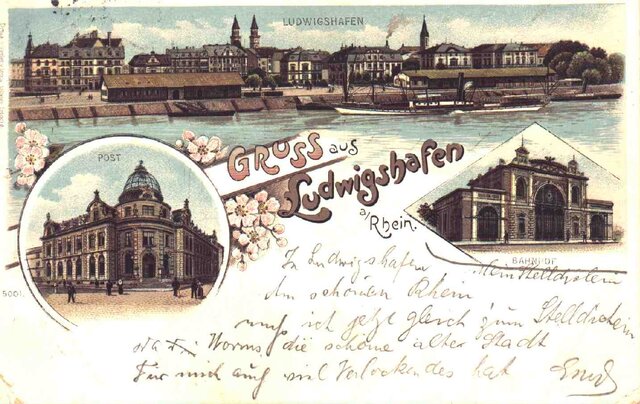 LUDWIGSHAFEN
POST
GRUSS aus
Ludwigshafen
a/Rhein.
BAHNHOF
5001.
In Ludwigshafen
Am schönen Rhein
muß ich jetzt gleich zum Stelldichein
Worms, die schöne alte Stadt
Für mich auch viel Verlockendes hat